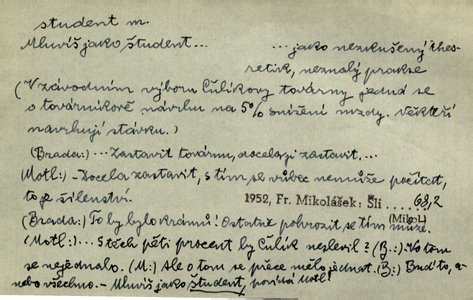 student m.
Mluvíš jako študent... ...jako nezkušený theo-
retik, neznalý prakse
(V závodním výboru Čulíkovy továrny jedná se
o továrníkově návrhu na 5% snížení mzdy. Někteří
navrhují stávku.)
(Brada:) ... Zastavit továrnu, docela ji zastavit, ...
(Motl:) - Docela zastavit, s tím se vůbec nemůže počítat,
to je šílenství. 1952, Fr. Mikolášek: Šli ..... 68,2
(Brada:) To by bylo krámů! Ostatně pohrozit se tím může. (Mikol.)
(Motl:) ... S těch pěti procent by Čulík neslevil? (B.:) - O tom
se nejednalo. (M.:) Ale o tom se přece mělo jednat. (B.:) Buď to, a-
nebo všechno. - Mluvíš jako študent, povídá Motl.